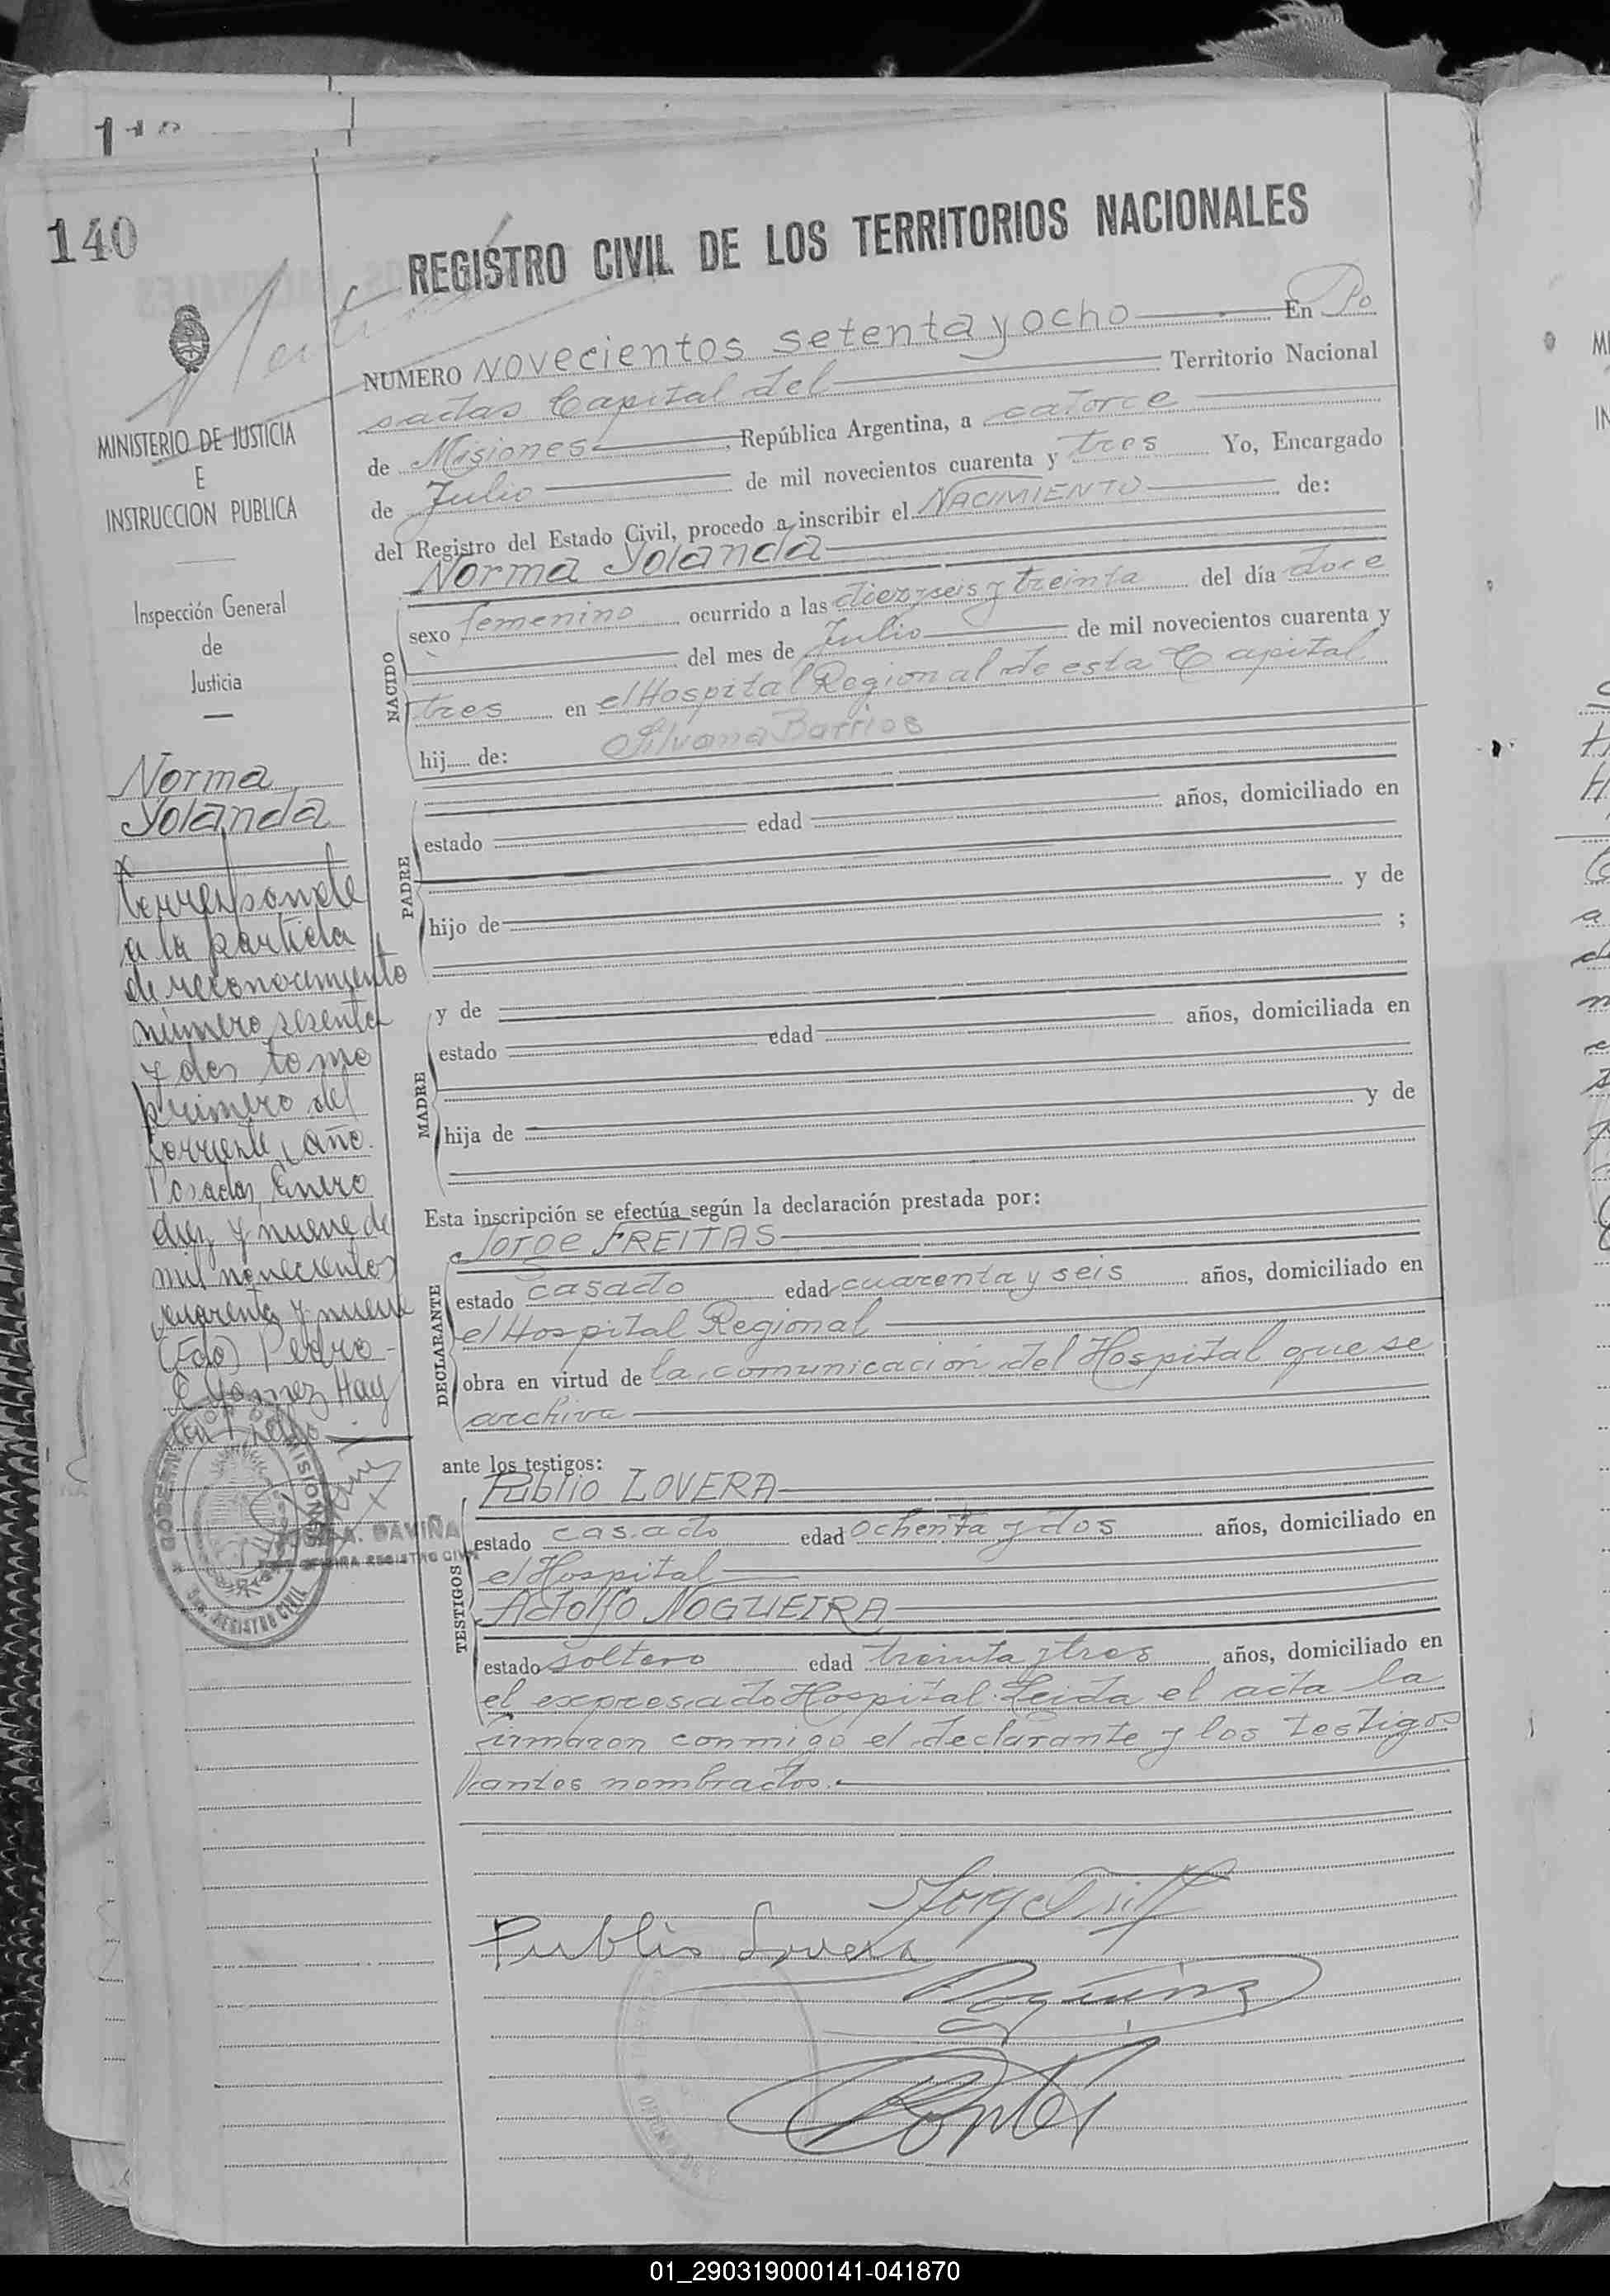 140
REGISTRO CIVIL DE LOS TERRITORIOS NACIONALES
MINISTERIO DE JUSTICIA
E
INSTRUCCION PUBLICA
Inspección General
de
Justicia
Norma
Yolanda
Corresponde
a la partida
de reconocimiento
número sesenta
y dos tomo
primero del
corriente año.
Posadas, Enero
diez y nueve de
mil novecientos
cuarenta y nueve
(Fdo) Pedro
Hay
un sello
A. DAVIÑA
REGISTRO CIVIL
NUMERO Novecientos setenta y ocho En Po
sadas Capital del Territorio Nacional
de Misiones, República Argentina, a catorce
de Julio de mil novecientos cuarenta y tres Yo, Encargado
del Registro del Estado Civil, procedo a inscribir el NACIMIENTO de:
Norma Yolanda
NACIDO
sexo femenino ocurrido a las diez y seis y treinta del día doce
del mes de Julio de mil novecientos cuarenta y
tres en el Hospital Regional de esta Capital
hij de: Silvana Barrios
PADRE
estado edad años, domiciliado en
hijo de y de
;
MADRE
y de
estado edad años, domiciliada en
hija de y de
Esta inscripción se efectúa según la declaración prestada por:
Jorge FREITAS
DECLARANTE
estado casado edad cuarenta y seis años, domiciliado en
el Hospital Regional
obra en virtud de la comunicación del Hospital que se
archiva
ante los testigos:
Publio LOVERA
TESTIGOS
estado casado edad ochenta y dos años, domiciliado en
el Hospital
Adolfo NOGUEIRA
estado soltero edad treinta y tres años, domiciliado en
el expresado Hospital. Leida el acta la
firmaron conmigo el declarante y los testigos
antes nombrados.
Publio Lovera
01_290319000141-041870